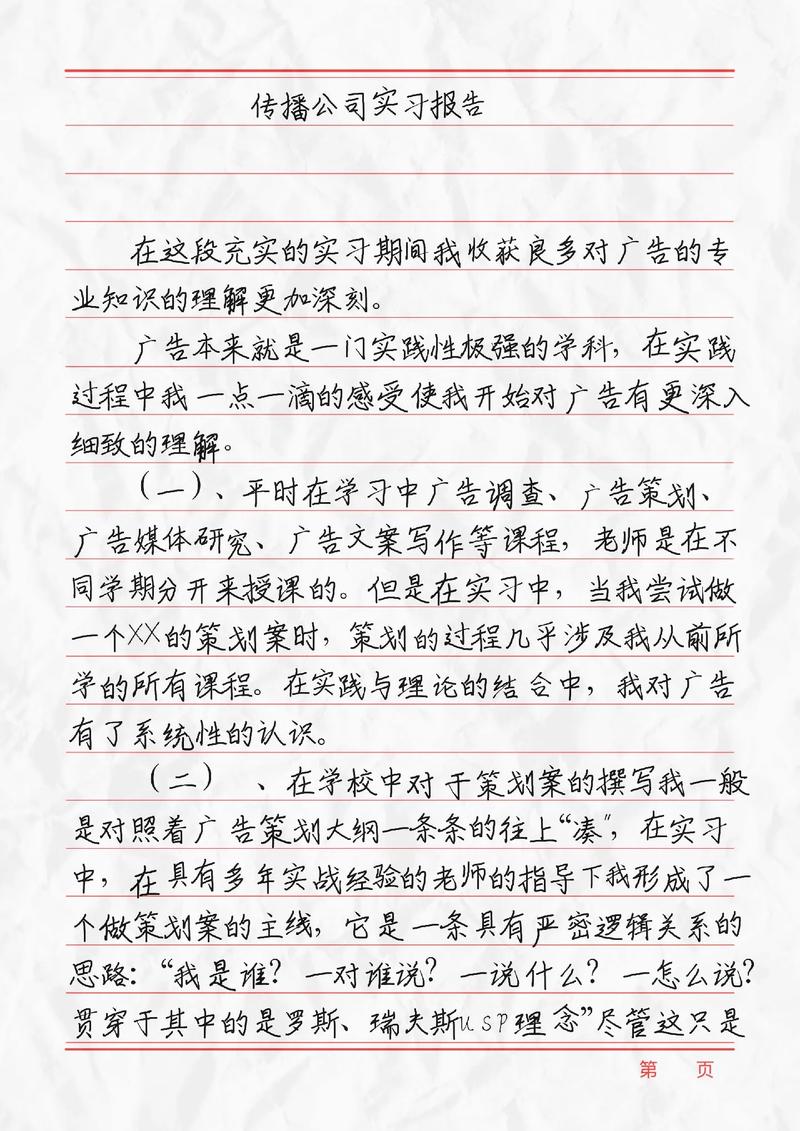 传播公司实习报告
在这段充实的实习期间我收获良多对广告的专
业知识的理解更加深刻。
广告本来就是一门实践性极强的学科，在实践
过程中我一点一滴的感受使我开始对广告有更深入
细致的理解。
（一）、平时在学习中广告调查、广告策划、
广告媒体研究、广告文案写作等课程，老师是在不
同学期分开来授课的。但是在实习中，当我尝试做
一个XX的策划案时，策划的过程几乎涉及我从前所
学的所有课程。在实践与理论的结合中，我对广告
有了系统性的认识。
（二） 、在学校中对于策划案的撰写我一般
是对照着广告策划大纲一条条的往上“凑”，在实习
中，在具有多年实战经验的老师的指导下我形成了一
个做策划案的主线，它是一条具有严密逻辑关系的
思路：“我是谁？一对谁说？一说什么？一怎么说？
贯穿于其中的是罗斯、瑞夫斯usp理念”尽管这只是
第 页